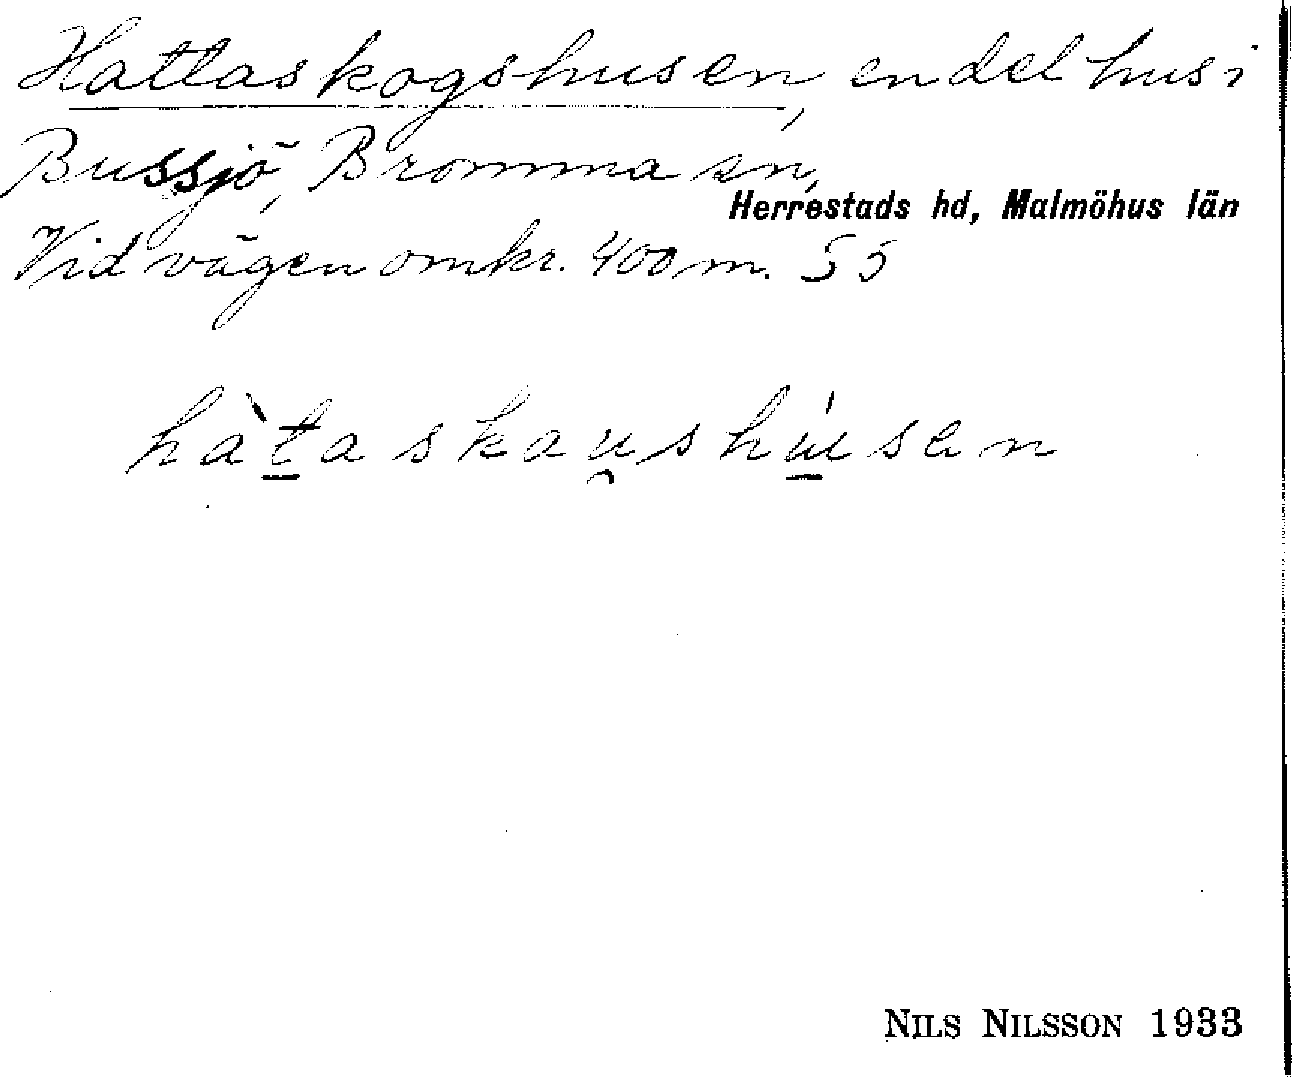 Hattaskogshusen, en del hus i
Bussjö, Bromma sn,
Herrestads hd, Malmöhus län
Vid vägen omkr. 400 m. S ö
hàt̲askau̯shú̲sen
NILS NILSSON 1933